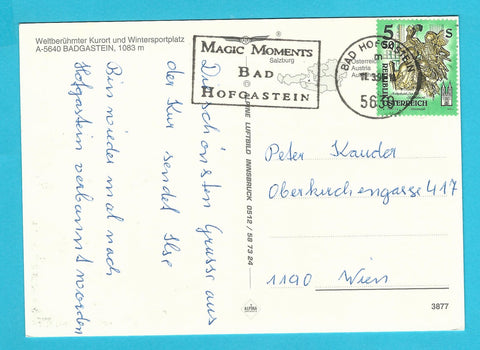 Weltberühmter Kurort und Wintersportplatz
A-5640 BADGASTEIN, 1083 m
MAGIC MOMENTS
Salzburg
BAD
HOFGASTEIN
BAD HOFGASTEIN
5630
Österreich
Austria
5 50 S
REPUBLIK
ÖSTERREICH
Bin wieder mal nach
Hofgastein verbannt worden
Die schönsten Grüsse aus
der Kur sendet Ilse
ALPINE LUFTBILD INNSBRUCK 0512 / 58 73 24
Peter Kauder
Oberkirchengasse 417
1190 Wien
ALPINA
3877